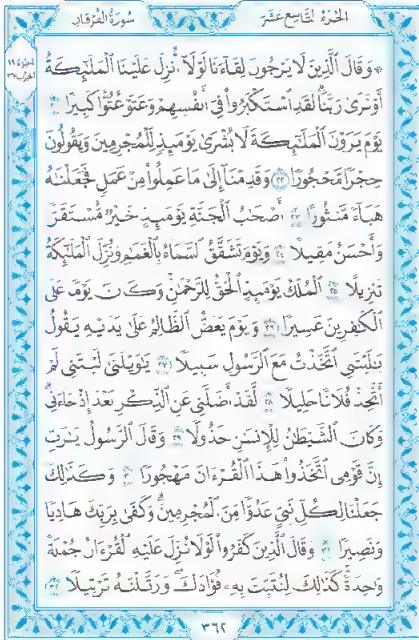 الجزء التاسع عشر
سورة الفرقان
۞ وَقَالَ ٱلَّذِينَ لَا يَرْجُونَ لِقَآءَنَا لَوْلَآ أُنزِلَ عَلَيْنَا ٱلْمَلَٰٓئِكَةُ
أَوْ نَرَىٰ رَبَّنَا لَقَدِ ٱسْتَكْبَرُوا۟ فِىٓ أَنفُسِهِمْ وَعَتَوْ عُتُوًّا كَبِيرًا
يَوْمَ يَرَوْنَ ٱلْمَلَٰٓئِكَةَ لَا بُشْرَىٰ يَوْمَئِذٍ لِّلْمُجْرِمِينَ وَيَقُولُونَ
حِجْرًا مَّحْجُورًا ٢٢ وَقَدِمْنَآ إِلَىٰ مَا عَمِلُوا۟ مِنْ عَمَلٍ فَجَعَلْنَٰهُ
هَبَآءً مَّنثُورًا ٢٣ أَصْحَٰبُ ٱلْجَنَّةِ يَوْمَئِذٍ خَيْرٌ مُّسْتَقَرًّا
وَأَحْسَنُ مَقِيلًا ٢٤ وَيَوْمَ تَشَقَّقُ ٱلسَّمَآءُ بِٱلْغَمَٰمِ وَنُزِّلَ ٱلْمَلَٰٓئِكَةُ
تَنزِيلًا ٢٥ ٱلْمُلْكُ يَوْمَئِذٍ ٱلْحَقُّ لِلرَّحْمَٰنِ وَكَانَ يَوْمًا عَلَى
ٱلْكَٰفِرِينَ عَسِيرًا ٢٦ وَيَوْمَ يَعَضُّ ٱلظَّالِمُ عَلَىٰ يَدَيْهِ يَقُولُ
يَٰلَيْتَنِى ٱتَّخَذْتُ مَعَ ٱلرَّسُولِ سَبِيلًا ٢٧ يَٰوَيْلَتَىٰ لَيْتَنِى لَمْ
أَتَّخِذْ فُلَانًا خَلِيلًا ٢٨ لَّقَدْ أَضَلَّنِى عَنِ ٱلذِّكْرِ بَعْدَ إِذْ جَآءَنِى
وَكَانَ ٱلشَّيْطَٰنُ لِلْإِنسَٰنِ خَذُولًا ٢٩ وَقَالَ ٱلرَّسُولُ يَٰرَبِّ
إِنَّ قَوْمِى ٱتَّخَذُوا۟ هَٰذَا ٱلْقُرْءَانَ مَهْجُورًا ٣٠ وَكَذَٰلِكَ
جَعَلْنَا لِكُلِّ نَبِىٍّ عَدُوًّا مِّنَ ٱلْمُجْرِمِينَ وَكَفَىٰ بِرَبِّكَ هَادِيًا
وَنَصِيرًا ٣١ وَقَالَ ٱلَّذِينَ كَفَرُوا۟ لَوْلَا نُزِّلَ عَلَيْهِ ٱلْقُرْءَانُ جُمْلَةً
وَٰحِدَةً كَذَٰلِكَ لِنُثَبِّتَ بِهِۦ فُؤَادَكَ وَرَتَّلْنَٰهُ تَرْتِيلًا ٣٢
٣٦٢